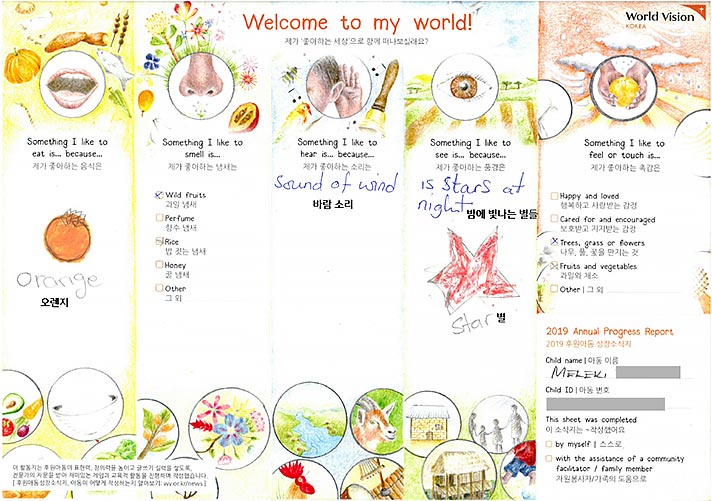 Welcome to my world!
제가 '좋아하는 세상'으로 함께 떠나보실래요?
World Vision
KOREA
Something I like to
eat is... because...
제가 좋아하는 음식은
Orange
오렌지
Something I like to
smell is...
제가 좋아하는 냄새는
Wild fruits
과일 냄새
Perfume
향수 냄새
Rice
밥 짓는 냄새
Honey
꿀 냄새
Other
그 외
Something I like to
hear is... because...
제가 좋아하는 소리는
Sound of wind
바람 소리
Something I like to
see is... because...
제가 좋아하는 풍경은
is stars at
night
밤에 빛나는 별들
star
별
Something I like to
feel or touch is...
제가 좋아하는 촉감은
Happy and loved
행복하고 사랑받는 감정
Cared for and encouraged
보호받고 지지받는 감정
Trees, grass or flowers
나무, 풀, 꽃을 만지는 것
Fruits and vegetables
과일와 채소
Other | 그 외
2019 Annual Progress Report
2019 후원아동 성장소식지
Child name | 아동 이름
MELEKI
Child ID | 아동 번호
This sheet was completed
이 소식지는 ~작성했어요
by myself | 스스로
with the assistance of a community
facilitator / family member
자원봉사자/가족의 도움으로
이 활동지는 후원아동이 표현력, 창의력을 높이고 글쓰기 실력을 쌓도록,
전문가의 자문을 받아 재미있는 게임과 교육적 활동을 진행하며 작성했습니다.
[ 후원아동성장소식지, 아동이 어떻게 작성하는지 알아보기: wv.or.kr/news ]